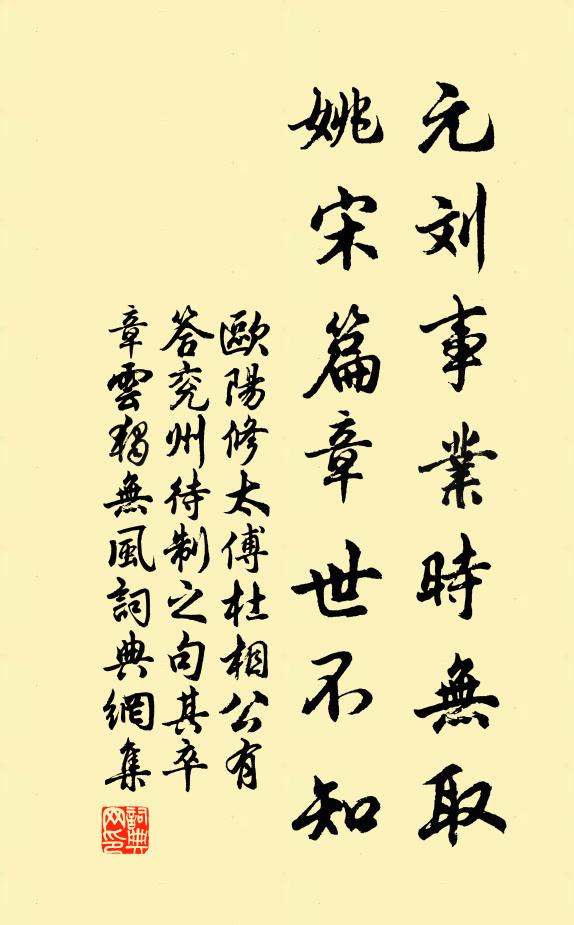 元刘事業時無取
姚宋篇章世不知
歐陽修太傅杜相公有
答兖州待制之句其卒
章雲独無風詞典網集
詞典
网印